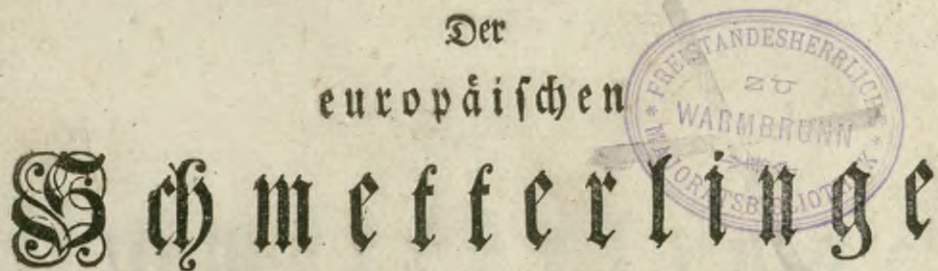 Der
europäischen
Schmetterlinge
FREISTANDESHERRLICHE
ZU
WARMBRUNN
MAJORATSBIBLIOTHEK